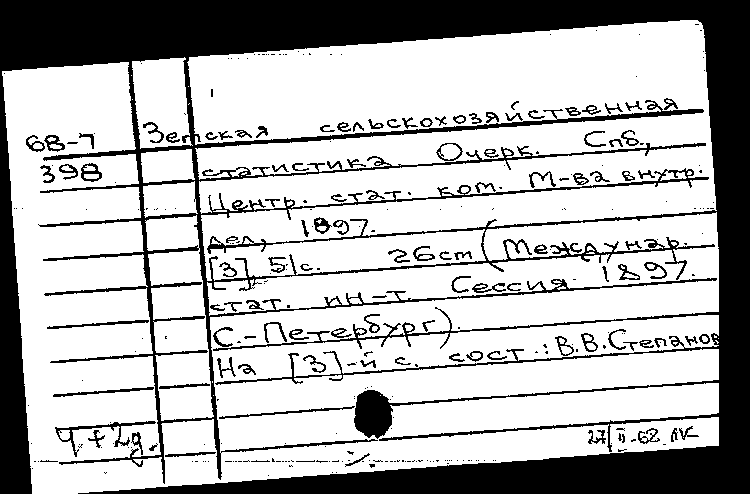 68-7 Земская сельскохозяйственная
398 статистика. Очерк. Спб.,
Центр. стат. ком. М-ва внутр.
дел, 1897.
[3], 51с. 26см (Междунар.
стат. ин-т. Сессия. 1897.
С.-Петербург).
На [3]-й с. сост.: В.В.Степанов
4+2д.
27/II-68 ЛК